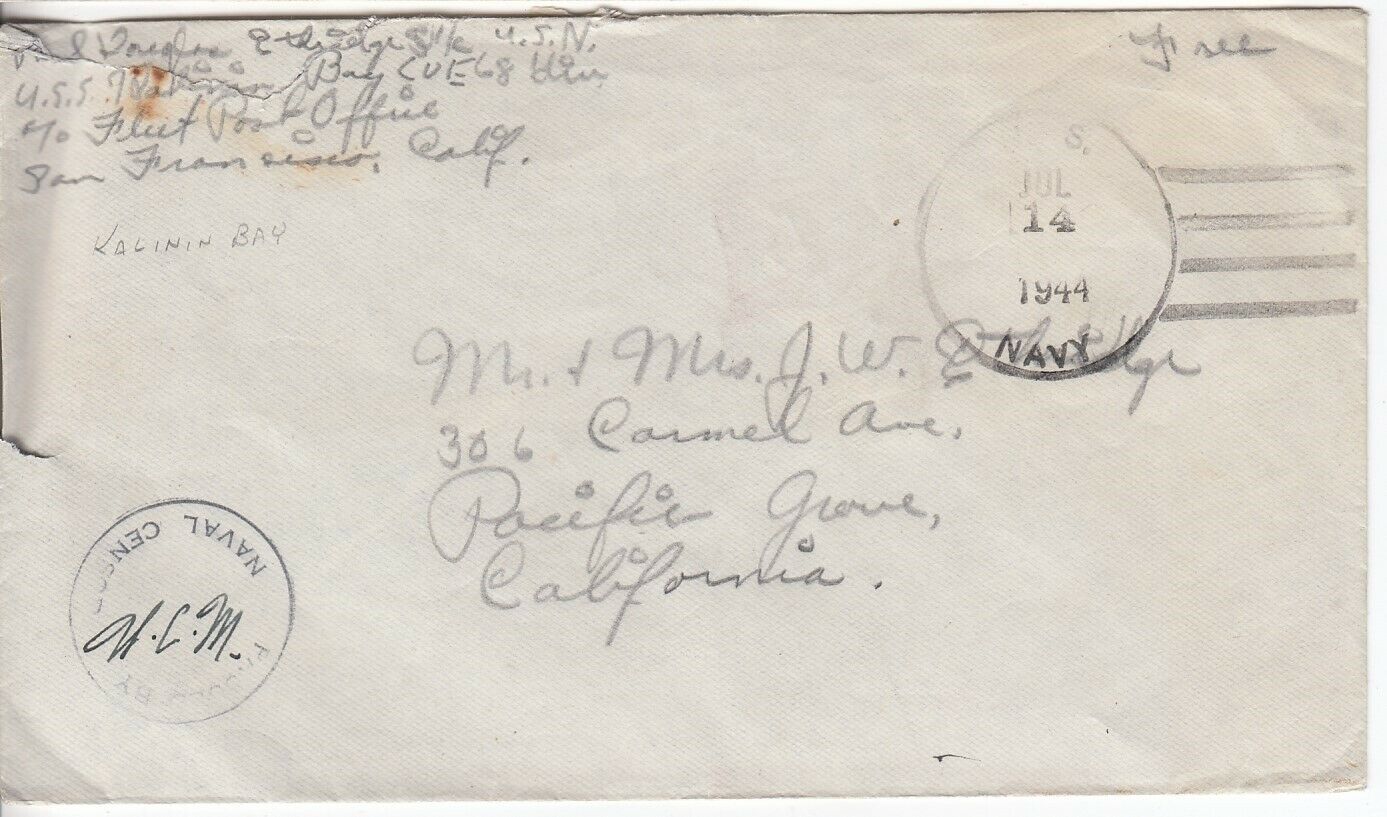 Douglas Ethridge S1/c U.S.N.
U.S.S. Kalinin Bay CVE 68 Div.
c/o Fleet Post Office
San Francisco, Calif.
Free
KALININ BAY
S.
JUL
14
1944
NAVY
Mr. & Mrs. J. W. Ethridge
306 Carmel Ave.
Pacific Grove,
California.
NAVAL CENSOR
H.C.M.
BY